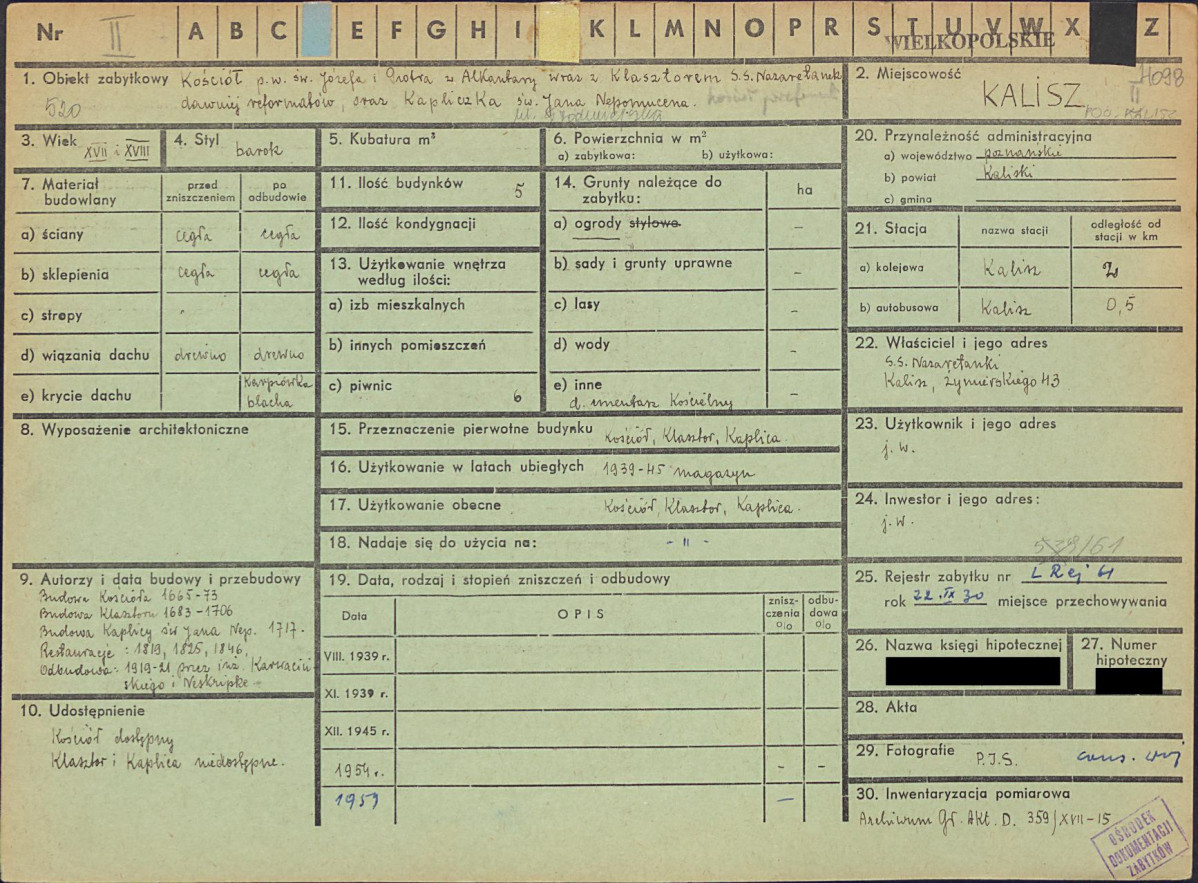 Nr II A B C E F G H I K L M N O P R S T U V W X Z
WIELKOPOLSKIE
1. Obiekt zabytkowy Kościół p.w. św. Józefa i Piotra z Alkantary wraz z Klasztorem S.S. Nazaretanek
520 dawniej reformatów, oraz Kapliczka św. Jana Nepomucena.
2. Miejscowość
KALISZ
4098
II
POW. KALISZ
3. Wiek XVII i XVIII
4. Styl barok
5. Kubatura m³
6. Powierzchnia w m²
a) zabytkowa: b) użytkowa:
7. Materiał budowlany
przed zniszczeniem
po odbudowie
a) ściany cegła cegła
b) sklepienia cegła cegła
c) stropy
d) wiązania dachu drewno drewno
e) krycie dachu Karpiówka
blacha
8. Wyposażenie architektoniczne
9. Autorzy i data budowy i przebudowy
Budowa Kościoła 1665-73
Budowa Klasztoru 1683-1706
Budowa Kaplicy św Jana Nep. 1717.
Restauracje: 1819, 1825, 1846,
Odbudowa: 1919-21 przez inż. Karwaciń
skiego i Neskripke
10. Udostępnienie
Kościół dostępny
Klasztor i Kaplica niedostępne.
11. Ilość budynków 5
12. Ilość kondygnacji
13. Użytkowanie wnętrza
według ilości:
a) izb mieszkalnych
b) innych pomieszczeń
c) piwnic 6
14. Grunty należące do
zabytku:
ha
a) ogrody stylowe. -
b) sady i grunty uprawne -
c) lasy -
d) wody -
e) inne -
d. cmentarz Kościelny
15. Przeznaczenie pierwotne budynku Kościół, Klasztor, Kaplica.
16. Użytkowanie w latach ubiegłych 1939-45 magazyn
17. Użytkowanie obecne Kościół, Klasztor, Kaplica.
18. Nadaje się do użycia na: - " -
19. Data, rodzaj i stopień zniszczeń i odbudowy
Data
OPIS
znisz-
czenia
o/o
odbu-
dowa
o/o
VIII. 1939 r.
XI. 1939 r.
XII. 1945 r.
1954 r. - -
1959 -
20. Przynależność administracyjna
a) województwo poznańskie
b) powiat Kaliski
c) gmina
21. Stacja
nazwa stacji
odległość od
stacji w km
a) kolejowa Kalisz 2
b) autobusowa Kalisz 0,5
22. Właściciel i jego adres
S.S. Nazaretanki
Kalisz, Żymierskiego 43
23. Użytkownik i jego adres
j. w.
24. Inwestor i jego adres:
j. w.
538/61
25. Rejestr zabytku nr L Rej 61
rok 22.IX 30 miejsce przechowywania
26. Nazwa księgi hipotecznej
27. Numer
hipoteczny
28. Akta
29. Fotografie P.I.S.
30. Inwentaryzacja pomiarowa
Archiwum Gł. Akt. D. 359/XVII-15
OŚRODEK
DOKUMENTACJI
ZABYTKÓW